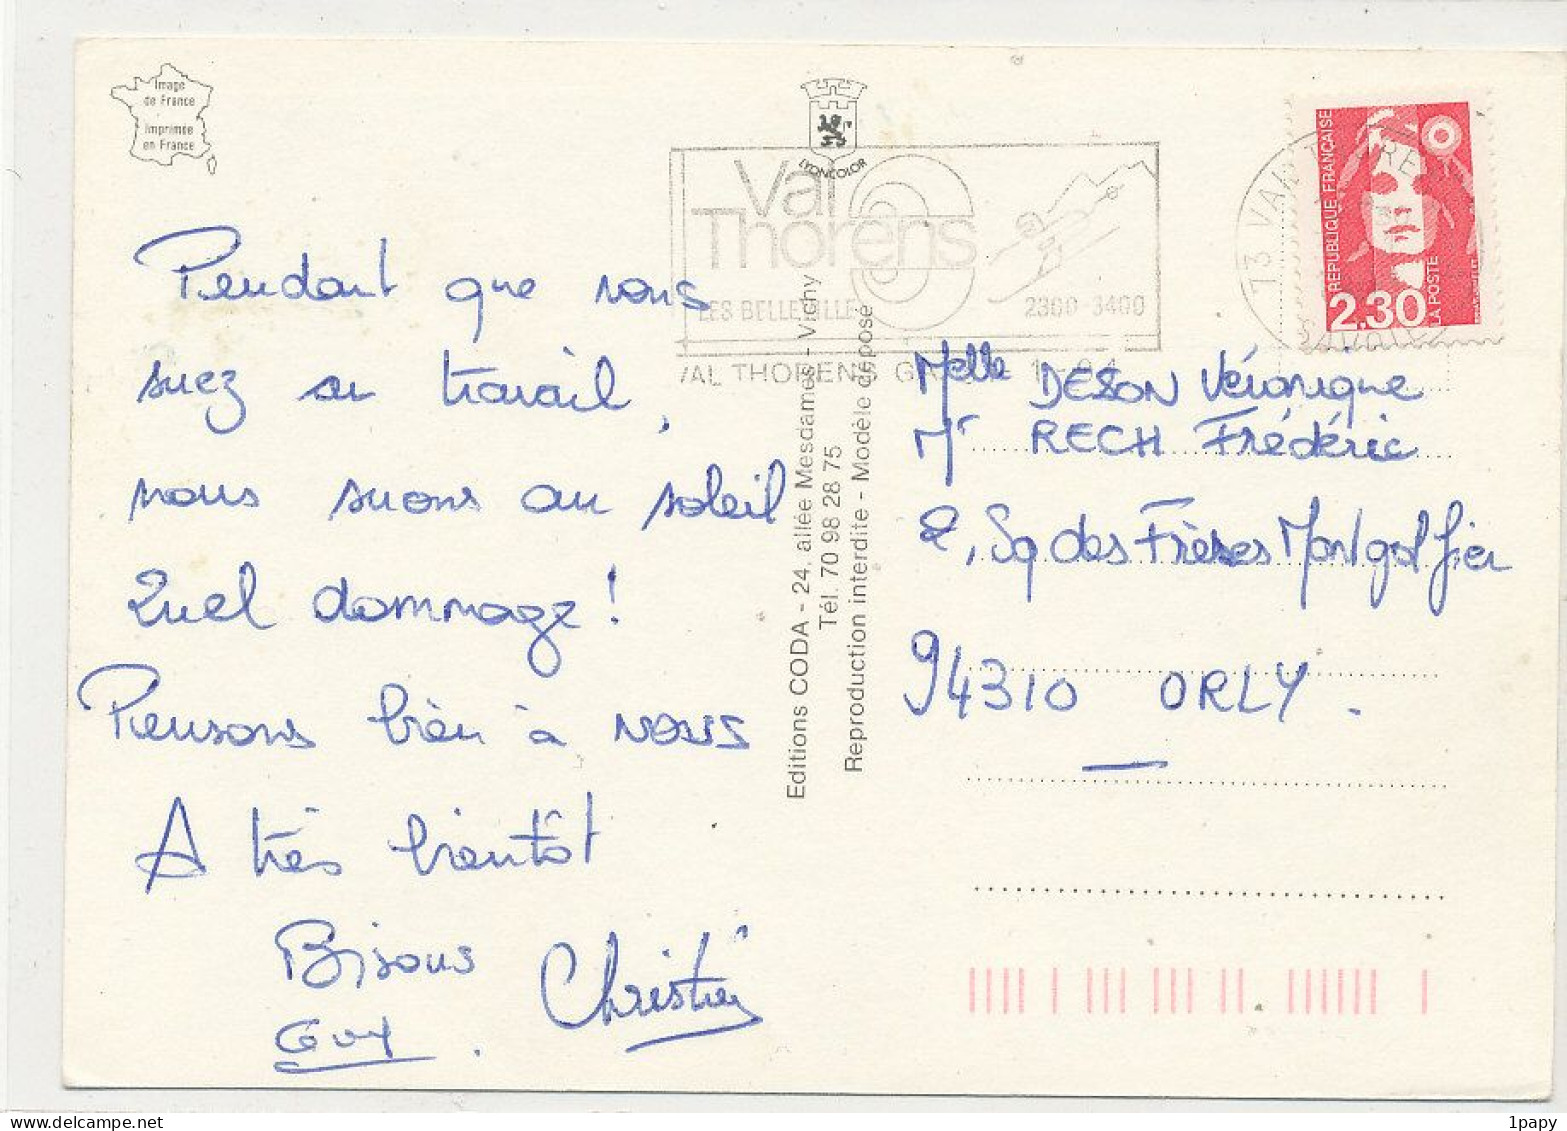 Image
de France
Imprimée
en France
LYONCOLOR
Val
Thorens
LES BELLEVILLE
2300-3400
73 VAL THORENS
SAVOIE
REPUBLIQUE FRANÇAISE
2,30
LA POSTE
Pendant que vous
suez au travail,
nous suons au soleil
Quel dommage !
Pensons bien à vous
A très bientôt
Bisous
Guy.
Christian
Editions CODA - 24, allée Mesdames - Vichy
Tél. 70 98 28 75
Reproduction interdite - Modèle déposé
Melle DESON Véronique
Mr RECH Frédéric
2, Sq des Frères Montgolfier
94310 ORLY.
1papy